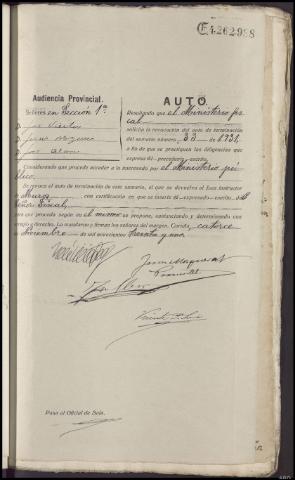 4.262.998
Audiencia Provincial.
AUTO.
Señores en Sección 1ª
Resultando que el Ministerio fis
cal
solicita la revocación del auto de terminación
del sumario número 33 de 1931,
a fin de que se practiquen las diligencias que
expresa el precedente escrito.
Considerando que procede acceder a lo interesado por el Ministerio pú
blico.
Se revoca el auto de terminación de este sumario, el que se devuelva al Juez instructor
de Muros con certificación en que se inserte el expresado escrito del
Señor Fiscal,
para que proceda según en el mismo se propone, sustanciando y determinando con
arreglo a derecho. Lo mandaron y firman los señores del margen. Coruña, catorce
Noviembre de mil novecientos treinta y uno.
Pase al Oficial de Sala.